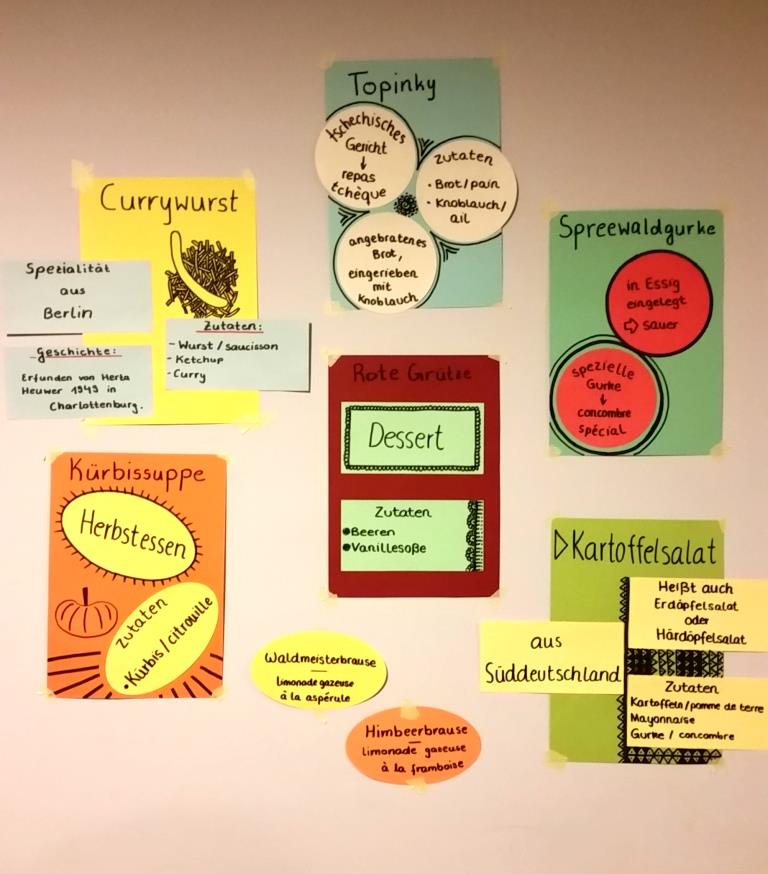 Topinky
tschechisches
Gericht
↓
repas
tchèque
Zutaten
• Brot/pain
• Knoblauch/
ail
angebratenes
Brot,
eingerieben
mit
Knoblauch
Currywurst
Spezialität
aus
Berlin
Zutaten:
- Wurst / saucisson
- Ketchup
- Curry
Geschichte:
Erfunden von Herta
Heuwer 1949 in
Charlottenburg.
Spreewaldgurke
in Essig
eingelegt
⇨ sauer
spezielle
Gurke
↓
concombre
spécial
Rote Grütze
Dessert
Zutaten
• Beeren
• Vanillesoße
Kürbissuppe
Herbstessen
Zutaten
• Kürbis/citrouille
Kartoffelsalat
Heißt auch
Erdäpfelsalat
oder
Härdöpfelsalat
aus
Süddeutschland
Zutaten
Kartoffeln/pomme de terre
Mayonnaise
Gurke / concombre
Waldmeisterbrause
limonade gazeuse
à la aspérule
Himbeerbrause
limonade gazeuse
à la framboise